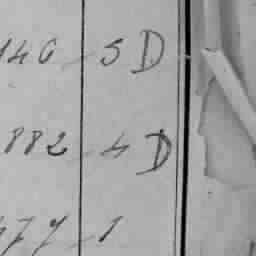 140 - 5 D
882 - 4 D
477 - 1